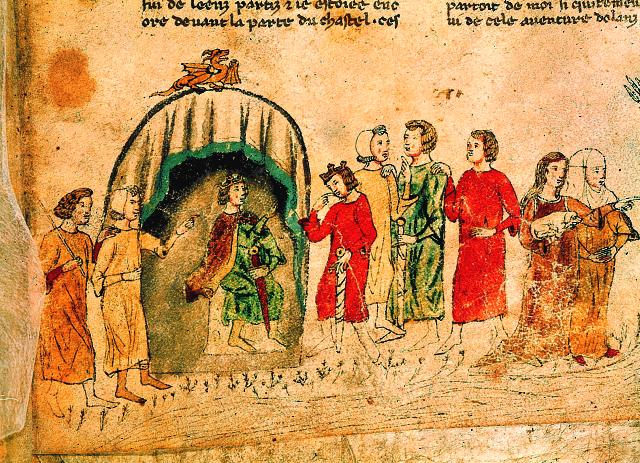 fui de leenz partiz ⁊ ie estoiee enc
ore deuant la porte du chastel · ces
partout de moi si quitemen
lui de cele auenture dolanz